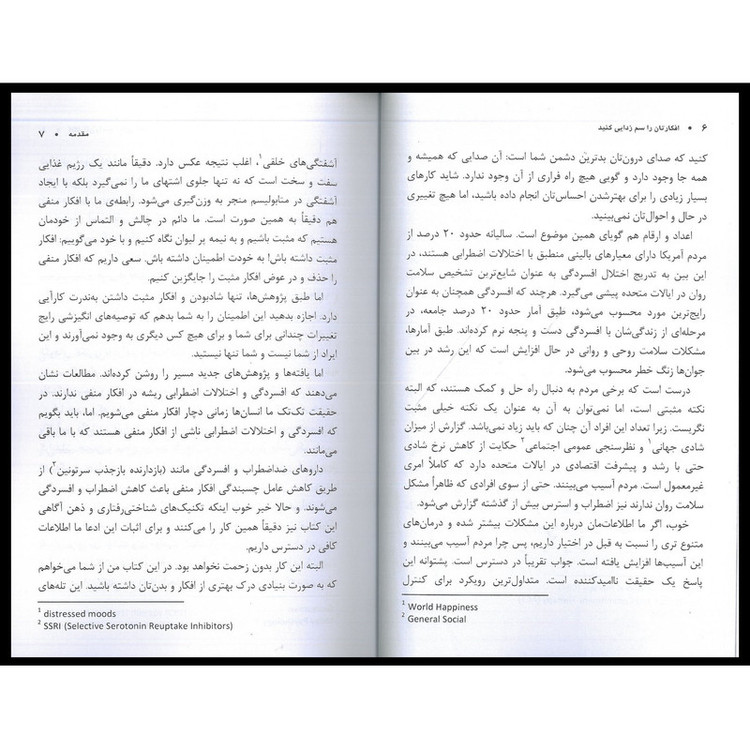 ۶ • افکارتان را سم زدایی کنید
کنید که صدای درون‌تان بدترین دشمن شما است: آن صدایی که همیشه و
همه جا وجود دارد و گویی هیچ راه فراری از آن وجود ندارد. شاید کارهای
بسیار زیادی را برای بهترشدن احساس‌تان انجام داده باشید، اما هیچ تغییری
در حال و احوال‌تان نمی‌بینید.
اعداد و ارقام هم گویای همین موضوع است. سالیانه حدود ۲۰ درصد از
مردم آمریکا دارای معیارهای بالینی منطبق با اختلالات اضطرابی هستند، در
این بین به تدریج اختلال افسردگی به عنوان شایع‌ترین تشخیص سلامت
روان در ایالات متحده پیشی می‌گیرد. هرچند که افسردگی همچنان به عنوان
رایج‌ترین مورد محسوب می‌شود، طبق آمار حدود ۲۰ درصد جامعه، در
مرحله‌ای از زندگی‌شان با افسردگی دست و پنجه نرم کرده‌اند. طبق آمارها،
مشکلات سلامت روحی و روانی در حال افزایش است که این رشد در بین
جوان‌ها زنگ خطر محسوب می‌شود.
درست است که برخی مردم به دنبال راه حل و کمک هستند، که البته
نکته مثبتی است، اما نمی‌توان به آن به عنوان یک نکته خیلی مثبت
نگریست. زیرا تعداد این افراد آن چنان که باید زیاد نمی‌باشد. گزارش از میزان
شادی جهانی۱ و نظرسنجی عمومی اجتماعی۲ حکایت از کاهش نرخ شادی
حتی با رشد و پیشرفت اقتصادی در ایالات متحده دارد که کاملاً امری
غیرمعمول است. مردم آسیب می‌بینند. حتی از سوی افرادی که ظاهراً مشکل
سلامت روان ندارند نیز اضطراب و استرس بیش از گذشته گزارش می‌شود.
خوب، اگر ما اطلاعات‌مان درباره این مشکلات بیشتر شده و درمان‌های
متنوع تری را نسبت به قبل در اختیار داریم، پس چرا مردم آسیب می‌بینند و
این آسیب‌ها افزایش یافته است. جواب تقریباً در دسترس است. پشتوانه این
پاسخ یک حقیقت ناامیدکننده است. متداول‌ترین رویکرد برای کنترل
1 World Happiness
2 General Social
مقدمه • ۷
آشفتگی‌های خلقی۱، اغلب نتیجه عکس دارد. دقیقاً مانند یک رژیم غذایی
سفت و سخت است که نه تنها جلوی اشتهای ما را نمی‌گیرد بلکه با ایجاد
آشفتگی در متابولیسم منجر به وزن‌گیری می‌شود. رابطه‌ی ما با افکار منفی
هم دقیقاً به همین صورت است. ما دائم در چالش و التماس از خودمان
هستیم که مثبت باشیم و به نیمه پر لیوان نگاه کنیم و با خود می‌گوییم: افکار
مثبت داشته باش! به خودت اطمینان داشته باش. سعی داریم که افکار منفی
را حذف و در عوض افکار مثبت را جایگزین کنیم.
اما طبق پژوهش‌ها، تنها شادبودن و افکار مثبت داشتن به‌ندرت کارآیی
دارد. اجازه بدهید این اطمینان را به شما بدهم که توصیه‌های انگیزشی رایج
تغییرات چندانی برای شما و برای هیچ کس دیگری به وجود نمی‌آورند و این
ایراد از شما نیست و شما تنها نیستید.
اما یافته‌ها و پژوهش‌های جدید مسیر را روشن کرده‌اند. مطالعات نشان
می‌دهند که افسردگی و اختلالات اضطرابی ریشه در افکار منفی ندارند. در
حقیقت تک‌تک ما انسان‌ها زمانی دچار افکار منفی می‌شویم. اما، باید بگویم
که افسردگی و اختلالات اضطرابی ناشی از افکار منفی هستند که با ما باقی
می‌مانند.
داروهای ضداضطراب و افسردگی مانند (بازدارنده بازجذب سرتونین۲) از
طریق کاهش عامل چسبندگی افکار منفی باعث کاهش اضطراب و افسردگی
می‌شوند. و حالا خبر خوب اینکه تکنیک‌های شناختی‌رفتاری و ذهن آگاهی
این کتاب نیز دقیقاً همین کار را می‌کنند و برای اثبات این ادعا ما اطلاعات
کافی در دسترس داریم.
البته این کار بدون زحمت نخواهد بود. در این کتاب من از شما می‌خواهم
که به صورت بنیادی درک بهتری از افکار و بدن‌تان داشته باشید. این تله‌های
1 distressed moods
2 SSRI (Selective Serotonin Reuptake Inhibitors)